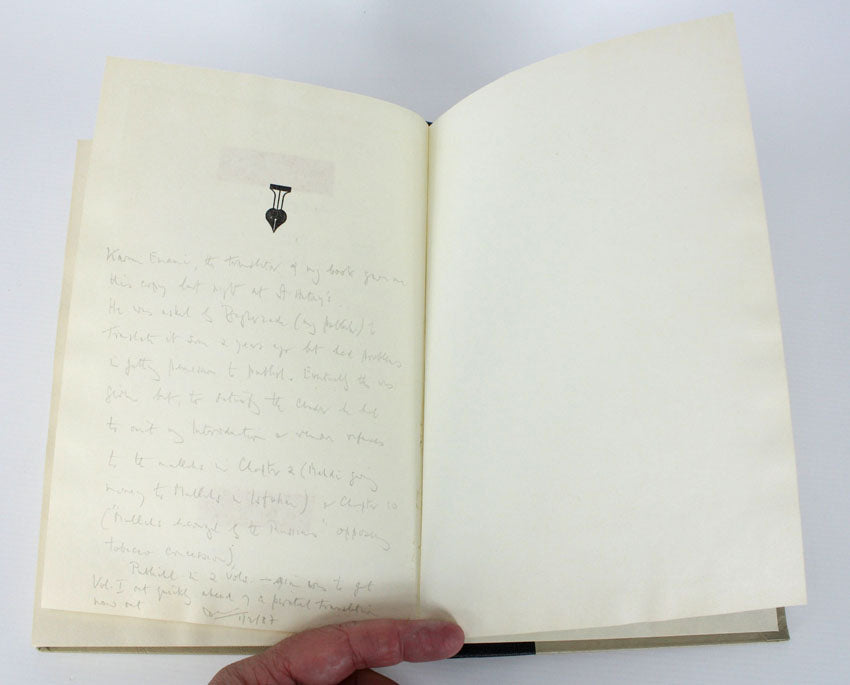 Karim Emami, the translator of my book gave me
this copy last night at St Antony's.
He was asked by (my publisher) to
translate it some 2 years ago but had problems
in getting permission to publish. Eventually this was
given but, to satisfy the censor he had
to omit my Introduction &
to the mullahs in Chapter 2 (Malcolm giving
money to Mullahs in Isfahan) & Chapter 10
("Mullahs encouraged by the Russians" opposing
tobacco concession).
Published in 2 vols. – was to get
Vol. I out quickly ahead of a pirated translation
now out 1/2/87